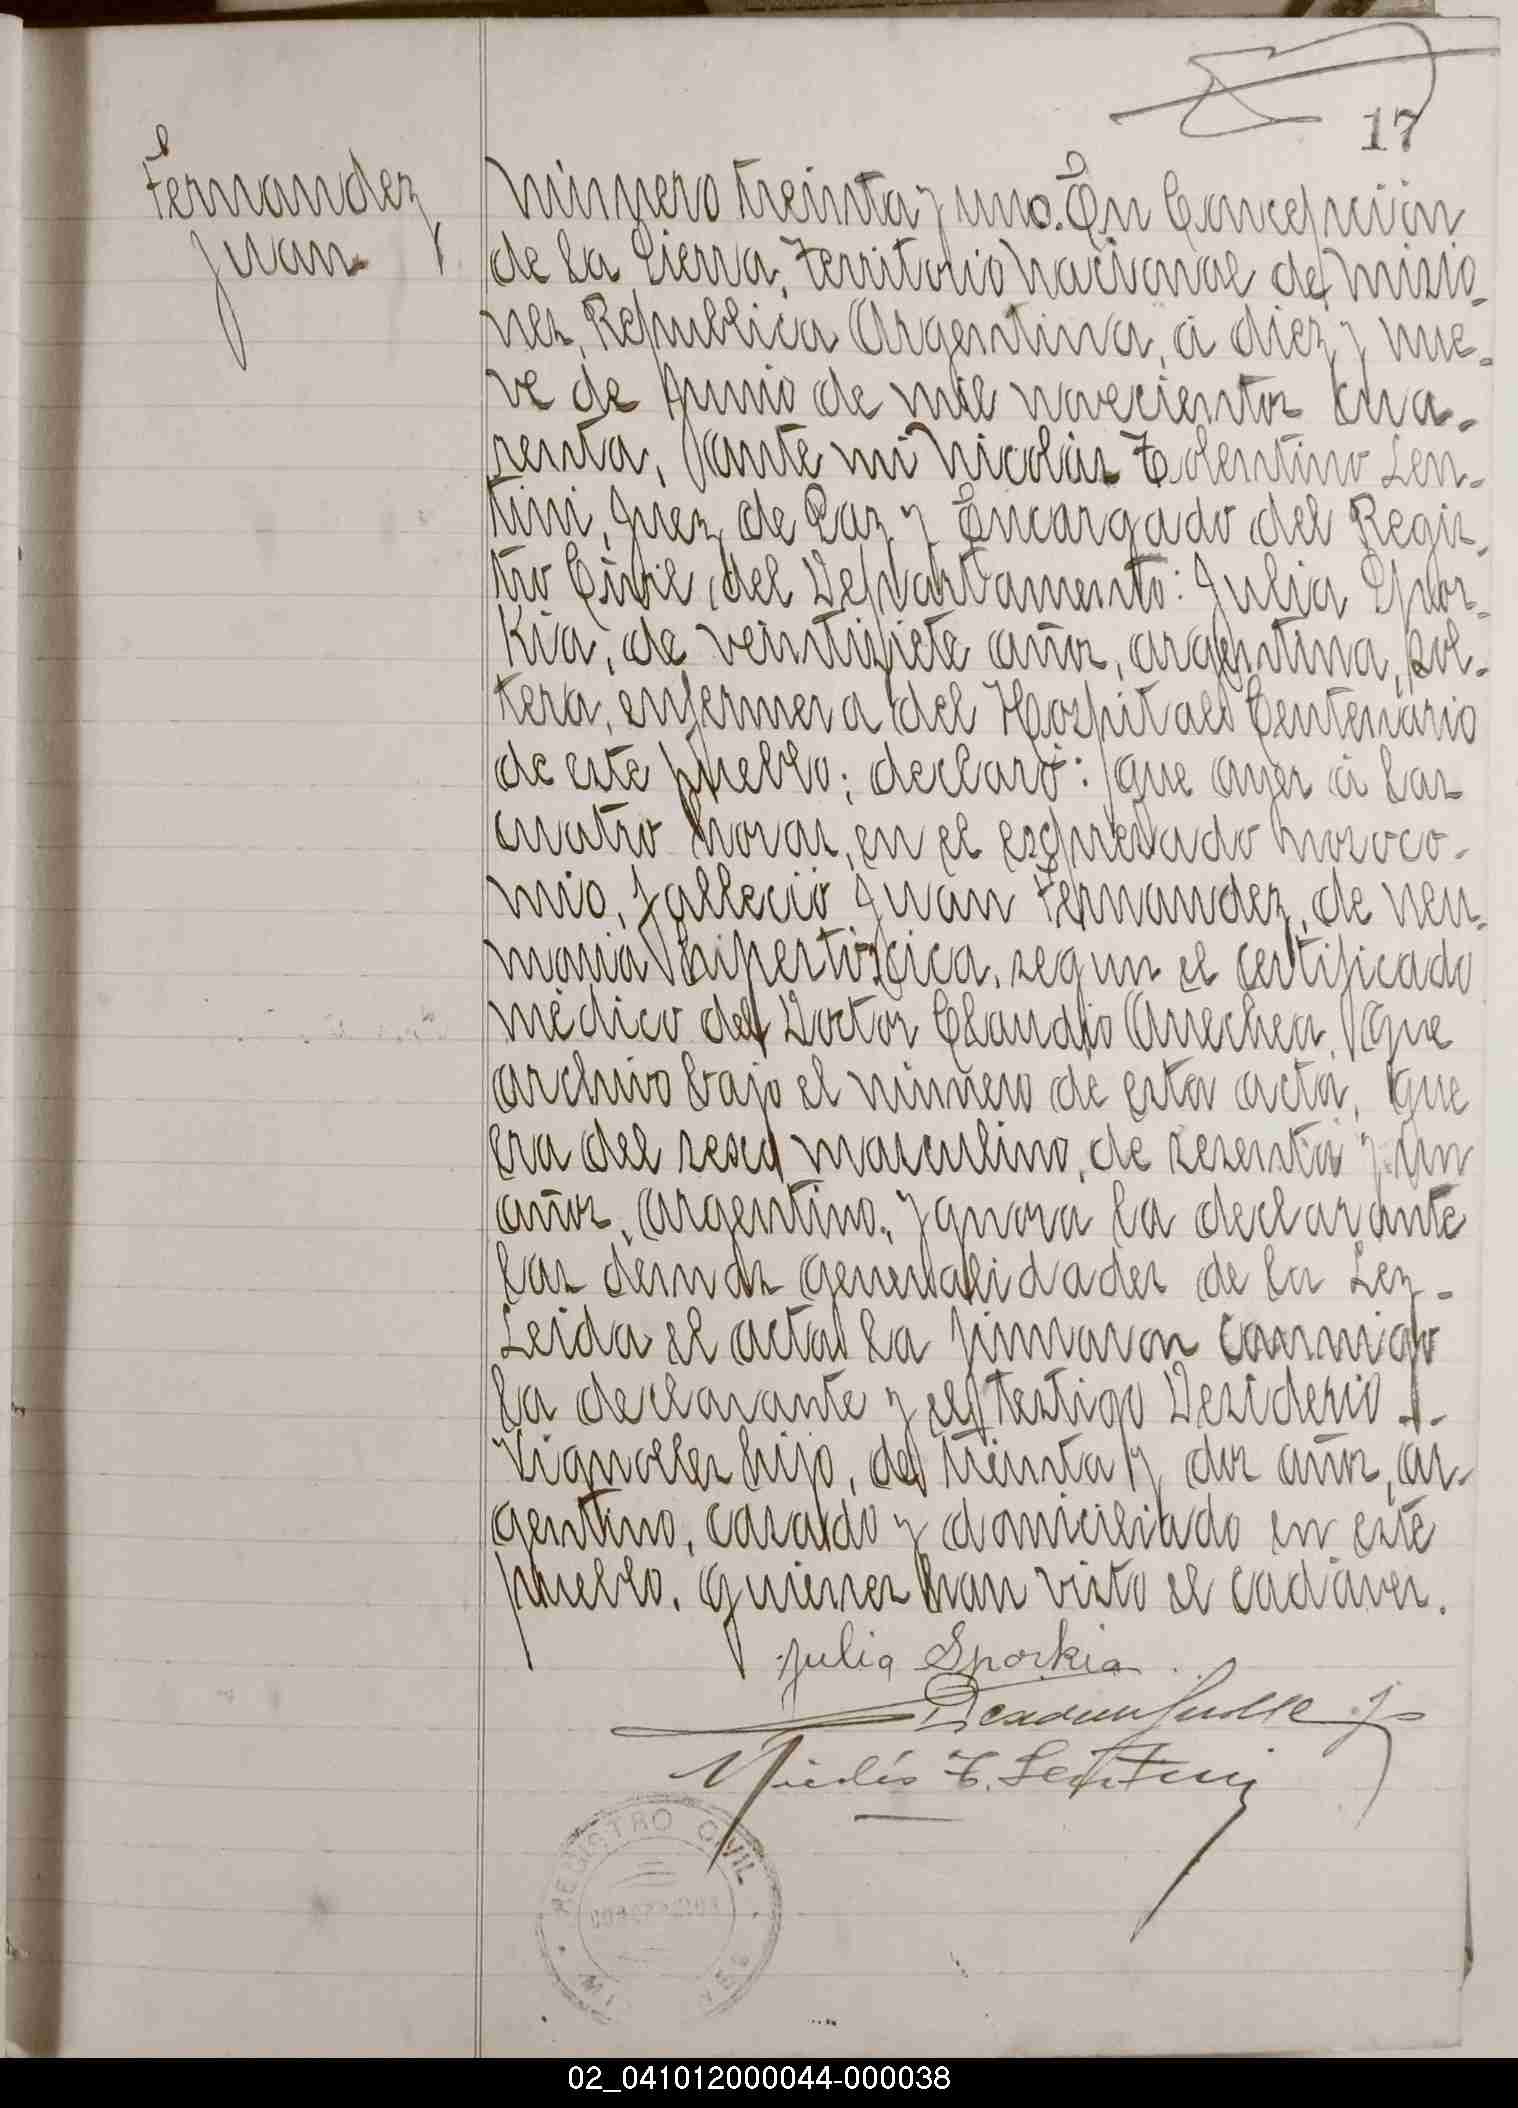 17
Fernandez,
Juan.
Número treinta y uno. En Concepción
de la Sierra, Territorio Nacional de Misio-
nes, Republica Argentina, á diez y nue-
ve de Junio de mil novecientos cua-
renta, ante mi Nicolás Tolentino Len-
tini, Juez de Paz y Encargado del Regis-
tro Civil del Departamento: Julia Spor-
kia, de veintisiete años, argentina, sol-
tera, enfermera del Hospital Centenario
de este pueblo; declaró: que ayer á las
cuatro horas, en el expresado nosoco-
mio, falleció Juan Fernandez, de neu-
monia hipertóxica, segun el certificado
médico del Doctor Claudio Arrechea, que
archivo bajo el número de esta acta, que
era del sexo masculino, de sesenta y un
años, argentino, ygnora la declarante
las demas generalidades de la Ley.-
Leida el acta la firmaron conmigo
la declarante y el testigo Desiderio J.
Vignolles hijo, de treinta y dos años, ar-
gentino, casado y domiciliado en este
pueblo, quienes han visto el cadáver.
Julia Sporkia
Nicolás T. Lentini
REGISTRO CIVIL